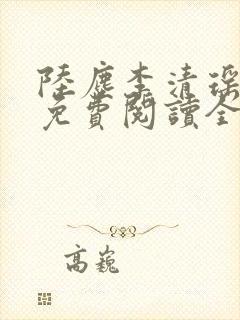 陸塵李清瑤
免費閱讀全
高巍